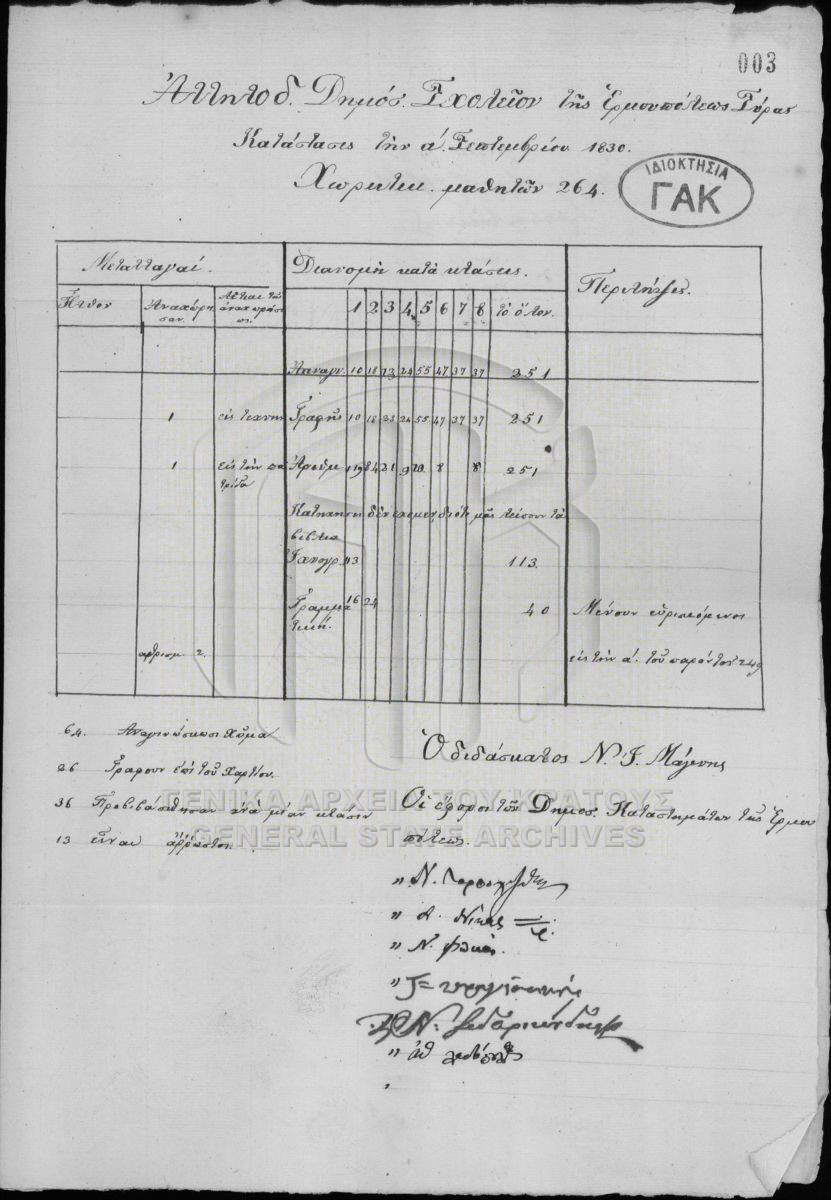 003
Ἀλληλοδ. Δημόσ. Σχολεῖον τῆς Ἑρμουπόλεως Σύρας
Κατάστασις τὴν α΄. Σεπτεμβρίου 1830.
Χωρητικ. μαθητῶν 264.
ΙΔΙΟΚΤΗΣΙΑ
ΓΑΚ
Μεταλλαγαί. Διανομὴ κατὰ κλάσεις. Περιλήψεις.
Ἦλθον Ἀνεχώρησαν. Αἰτίαι τῶν ἀναχωρήσεων. 1 2 3 4 5 6 7 8 τὸ ὅλον.
Ἀναγν. 10 18 23 24 55 47 37 37 251
1 εἰς τέχνην Γραφῆς 10 18 23 24 55 47 37 37 251
1 εἰς τὴν πατρίδα Ἀριθμ 119 84 21 9 8 8 251
Κατήχησιν δὲν ἔχομεν, διότι μᾶς λείπουν τὰ
βιβλία
Ἰχνογρ. 113 113.
Γραμματική. 16 24 40 Μένουν εὑρισκόμενοι
ἀθροισμ. 2. εἰς τὴν α΄. τοῦ παρόντος 249
64. Ἀναγινώσκουσι χῦμα
26 Γράφουν ἐπὶ τοῦ χαρτίου.
36 Προβιβάσθησαν ἀνὰ μίαν κλάσιν
13 εἶναι ἄῤῥωστοι.
Ὁ διδάσκαλος Ν. Ι.
Οἱ ἔφοροι τῶν Δημοσ. Καταστημάτων τῆς Ἑρμου
πόλεως.
" Ν.
" Ν.
ΓΕΝΙΚΑ ΑΡΧΕΙΑ ΤΟΥ ΚΡΑΤΟΥΣ
GENERAL STATE ARCHIVES